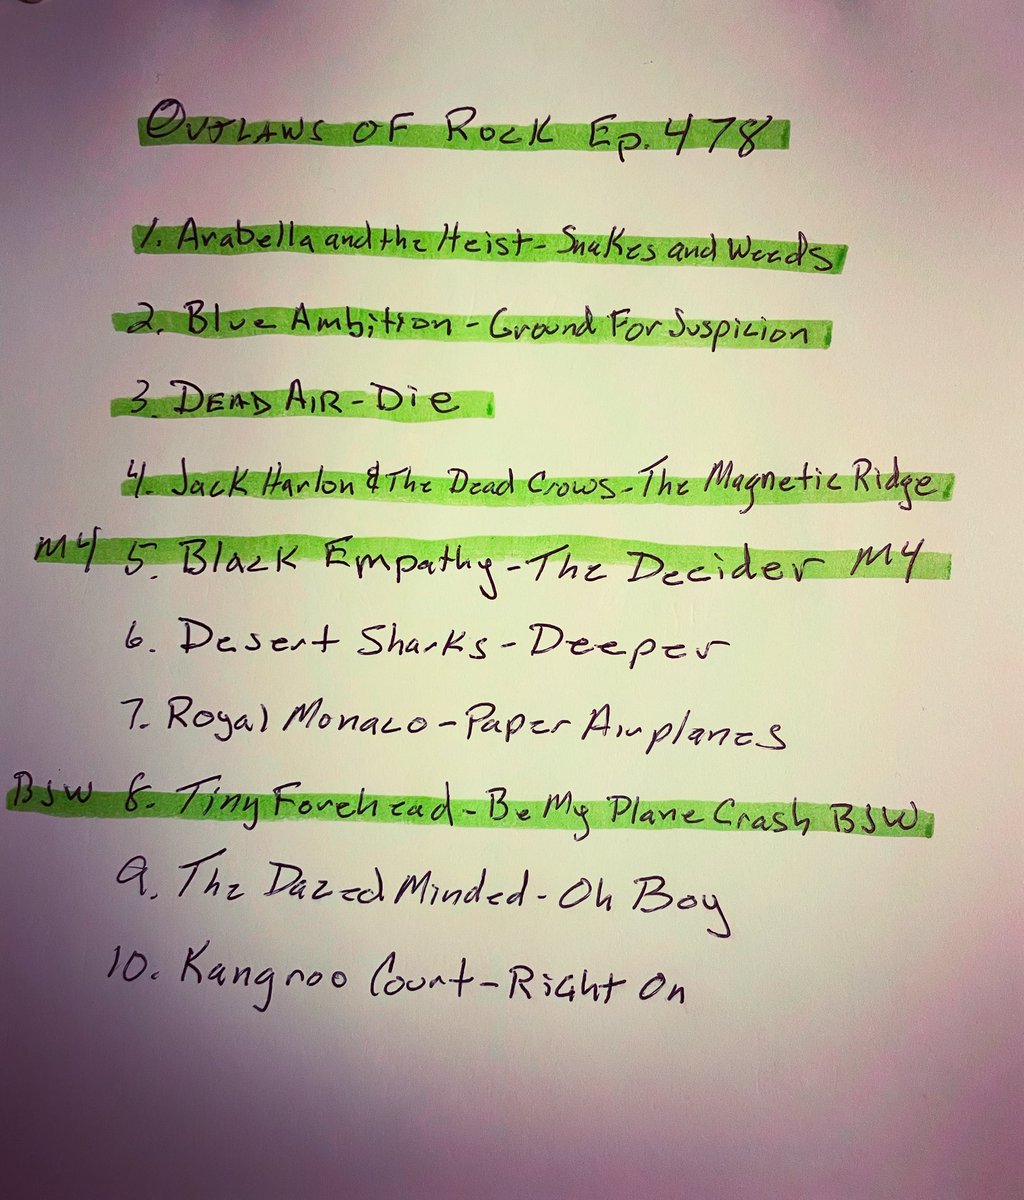 Outlaws of Rock Ep. 478
1. Arabella and the Heist - Snakes and Weeds
2. Blue Ambition - Ground For Suspicion
3. Dead Air - Die
4. Jack Harlon & The Dead Crows - The Magnetic Ridge
M4 5. Black Empathy - The Decider M4
6. Desert Sharks - Deeper
7. Royal Monaco - Paper Airplanes
BSW 8. Tiny Forehead - Be My Plane Crash BSW
9. The Dazed Minded - Oh Boy
10. Kangroo Court - Right On